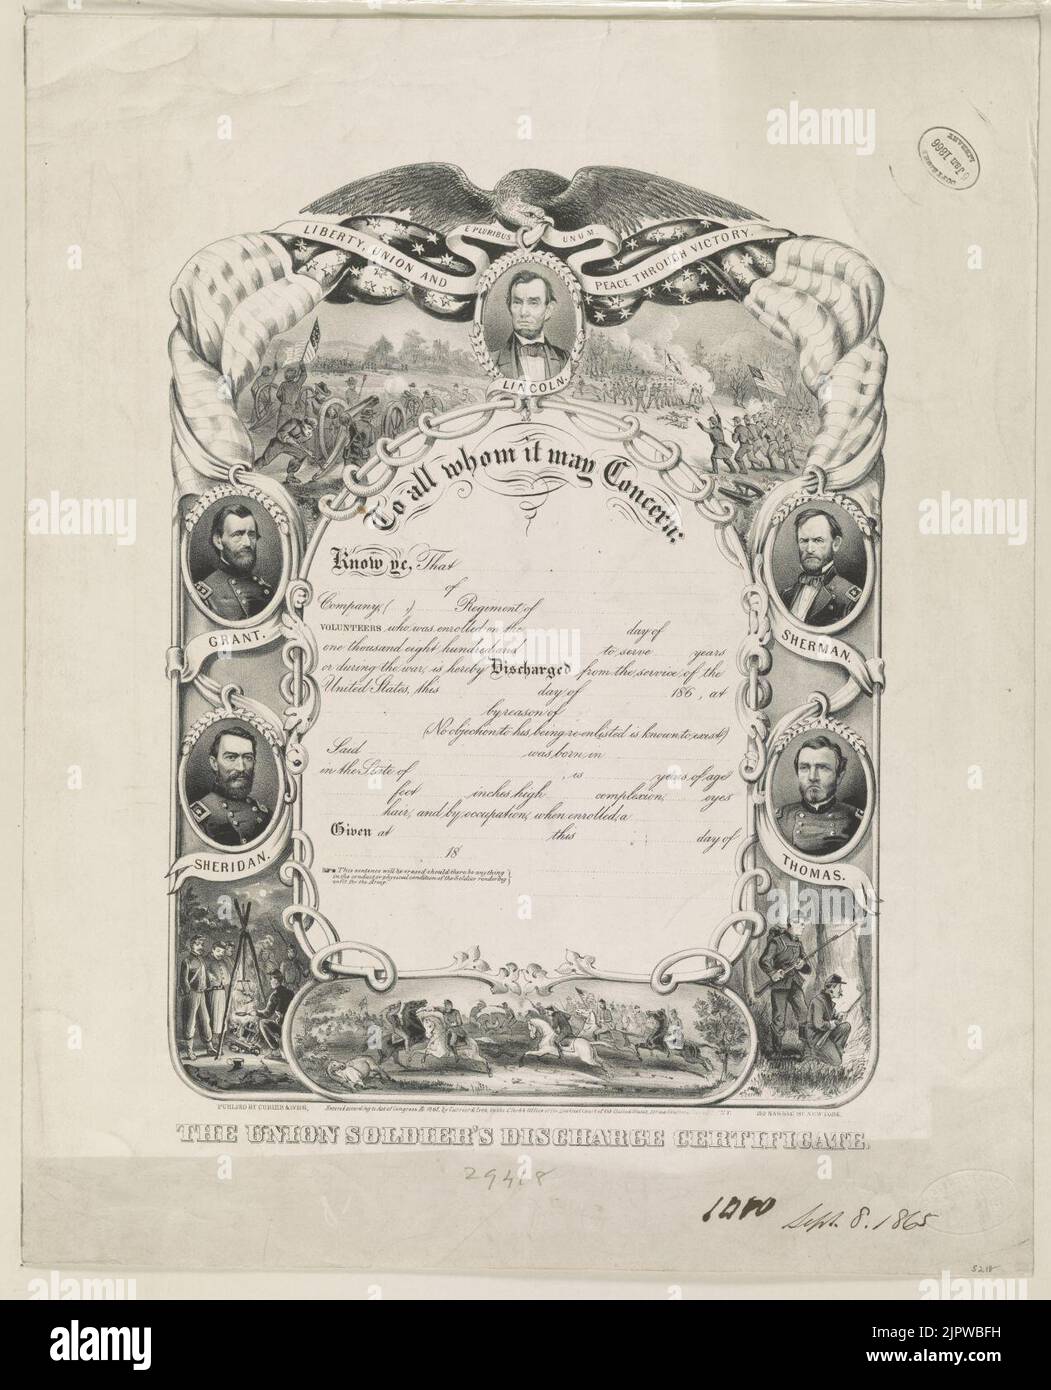 6 Jan 1866
LIBRARY
E PLURIBUS UNUM.
LIBERTY, UNION AND PEACE THROUGH VICTORY.
LINCOLN.
To all whom it may Concern:
GRANT.
SHERMAN.
SHERIDAN.
THOMAS.
Know ye, That
of
Company, ( ,) Regiment of
VOLUNTEERS who was enrolled on the day of
one thousand eight hundred and to serve years
or during the war, is hereby Discharged from the service of the
United States, this day of 186 , at
by reason of
(No objection to his being re-enlisted is known to exist)
Said was born in
in the State of , is years of age
feet inches high complexion, eyes
hair, and by occupation, when enrolled, a
Given at this day of
18
This sentence will be erased should there be anything
in the conduct or physical condition of the Soldier rendering
unfit for the Army.
PUBLISHED BY CURRIER & IVES, Entered according to Act of Congress, 1865, by Currier & Ives, in the Clerk's Office of the District Court of the United States, 152 NASSAU ST. NEW YORK.
THE UNION SOLDIER'S DISCHARGE CERTIFICATE.
29418
Sept. 8. 1865
5218
alamy
Image ID: 2JPWBFH
www.alamy.com